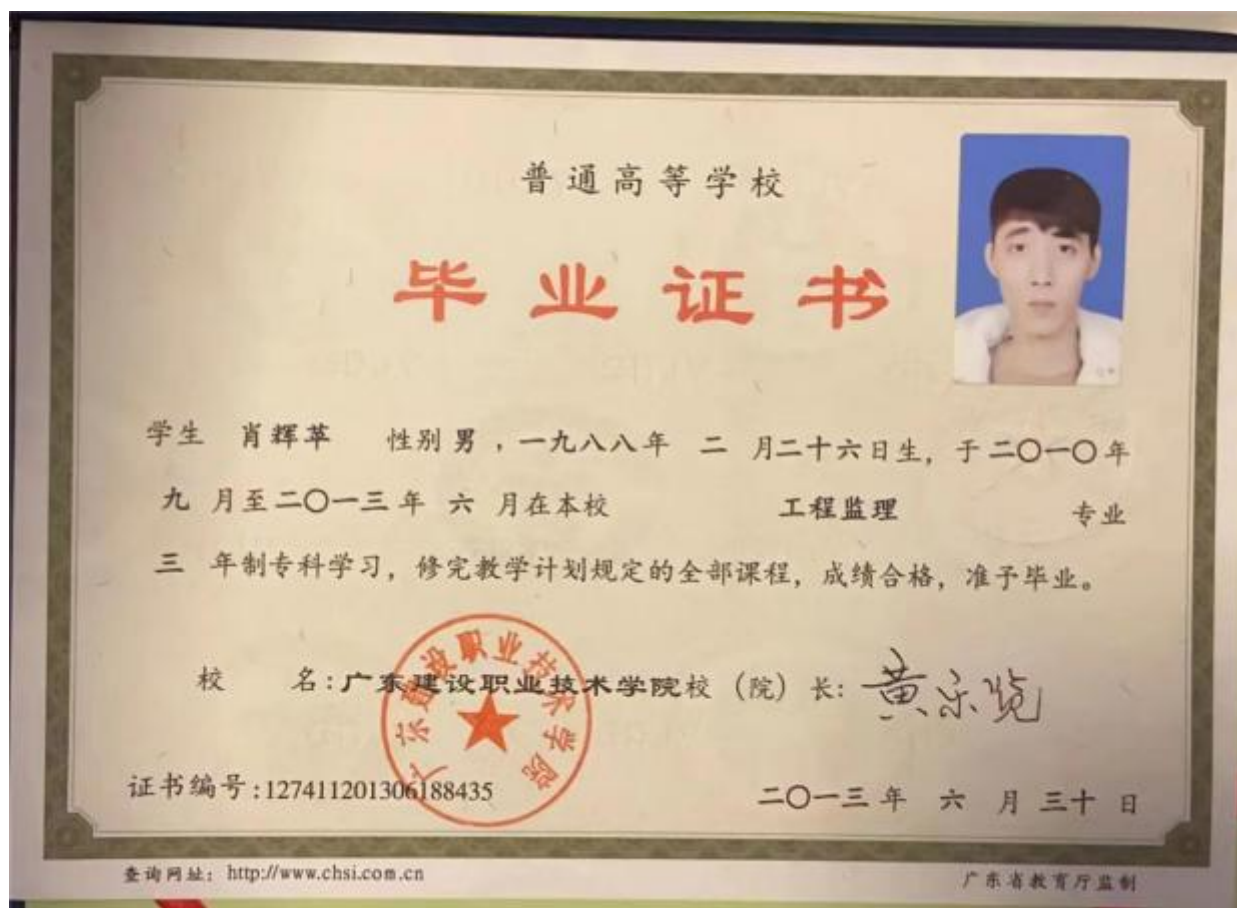 普通高等学校
毕业证书
学生 肖辉苹 性别 男 , 一九八八年 二 月二十六日生, 于二〇一〇年
九 月至二〇一三年 六 月在本校 工程监理 专业
三 年制专科学习, 修完教学计划规定的全部课程, 成绩合格, 准予毕业。
校 名: 广东建设职业技术学院 校 (院) 长: 黄乐览
广东建设职业技术学院
证书编号:127411201306188435 二〇一三年 六 月 三十 日
查询网址: http://www.chsi.com.cn 广东省教育厅监制